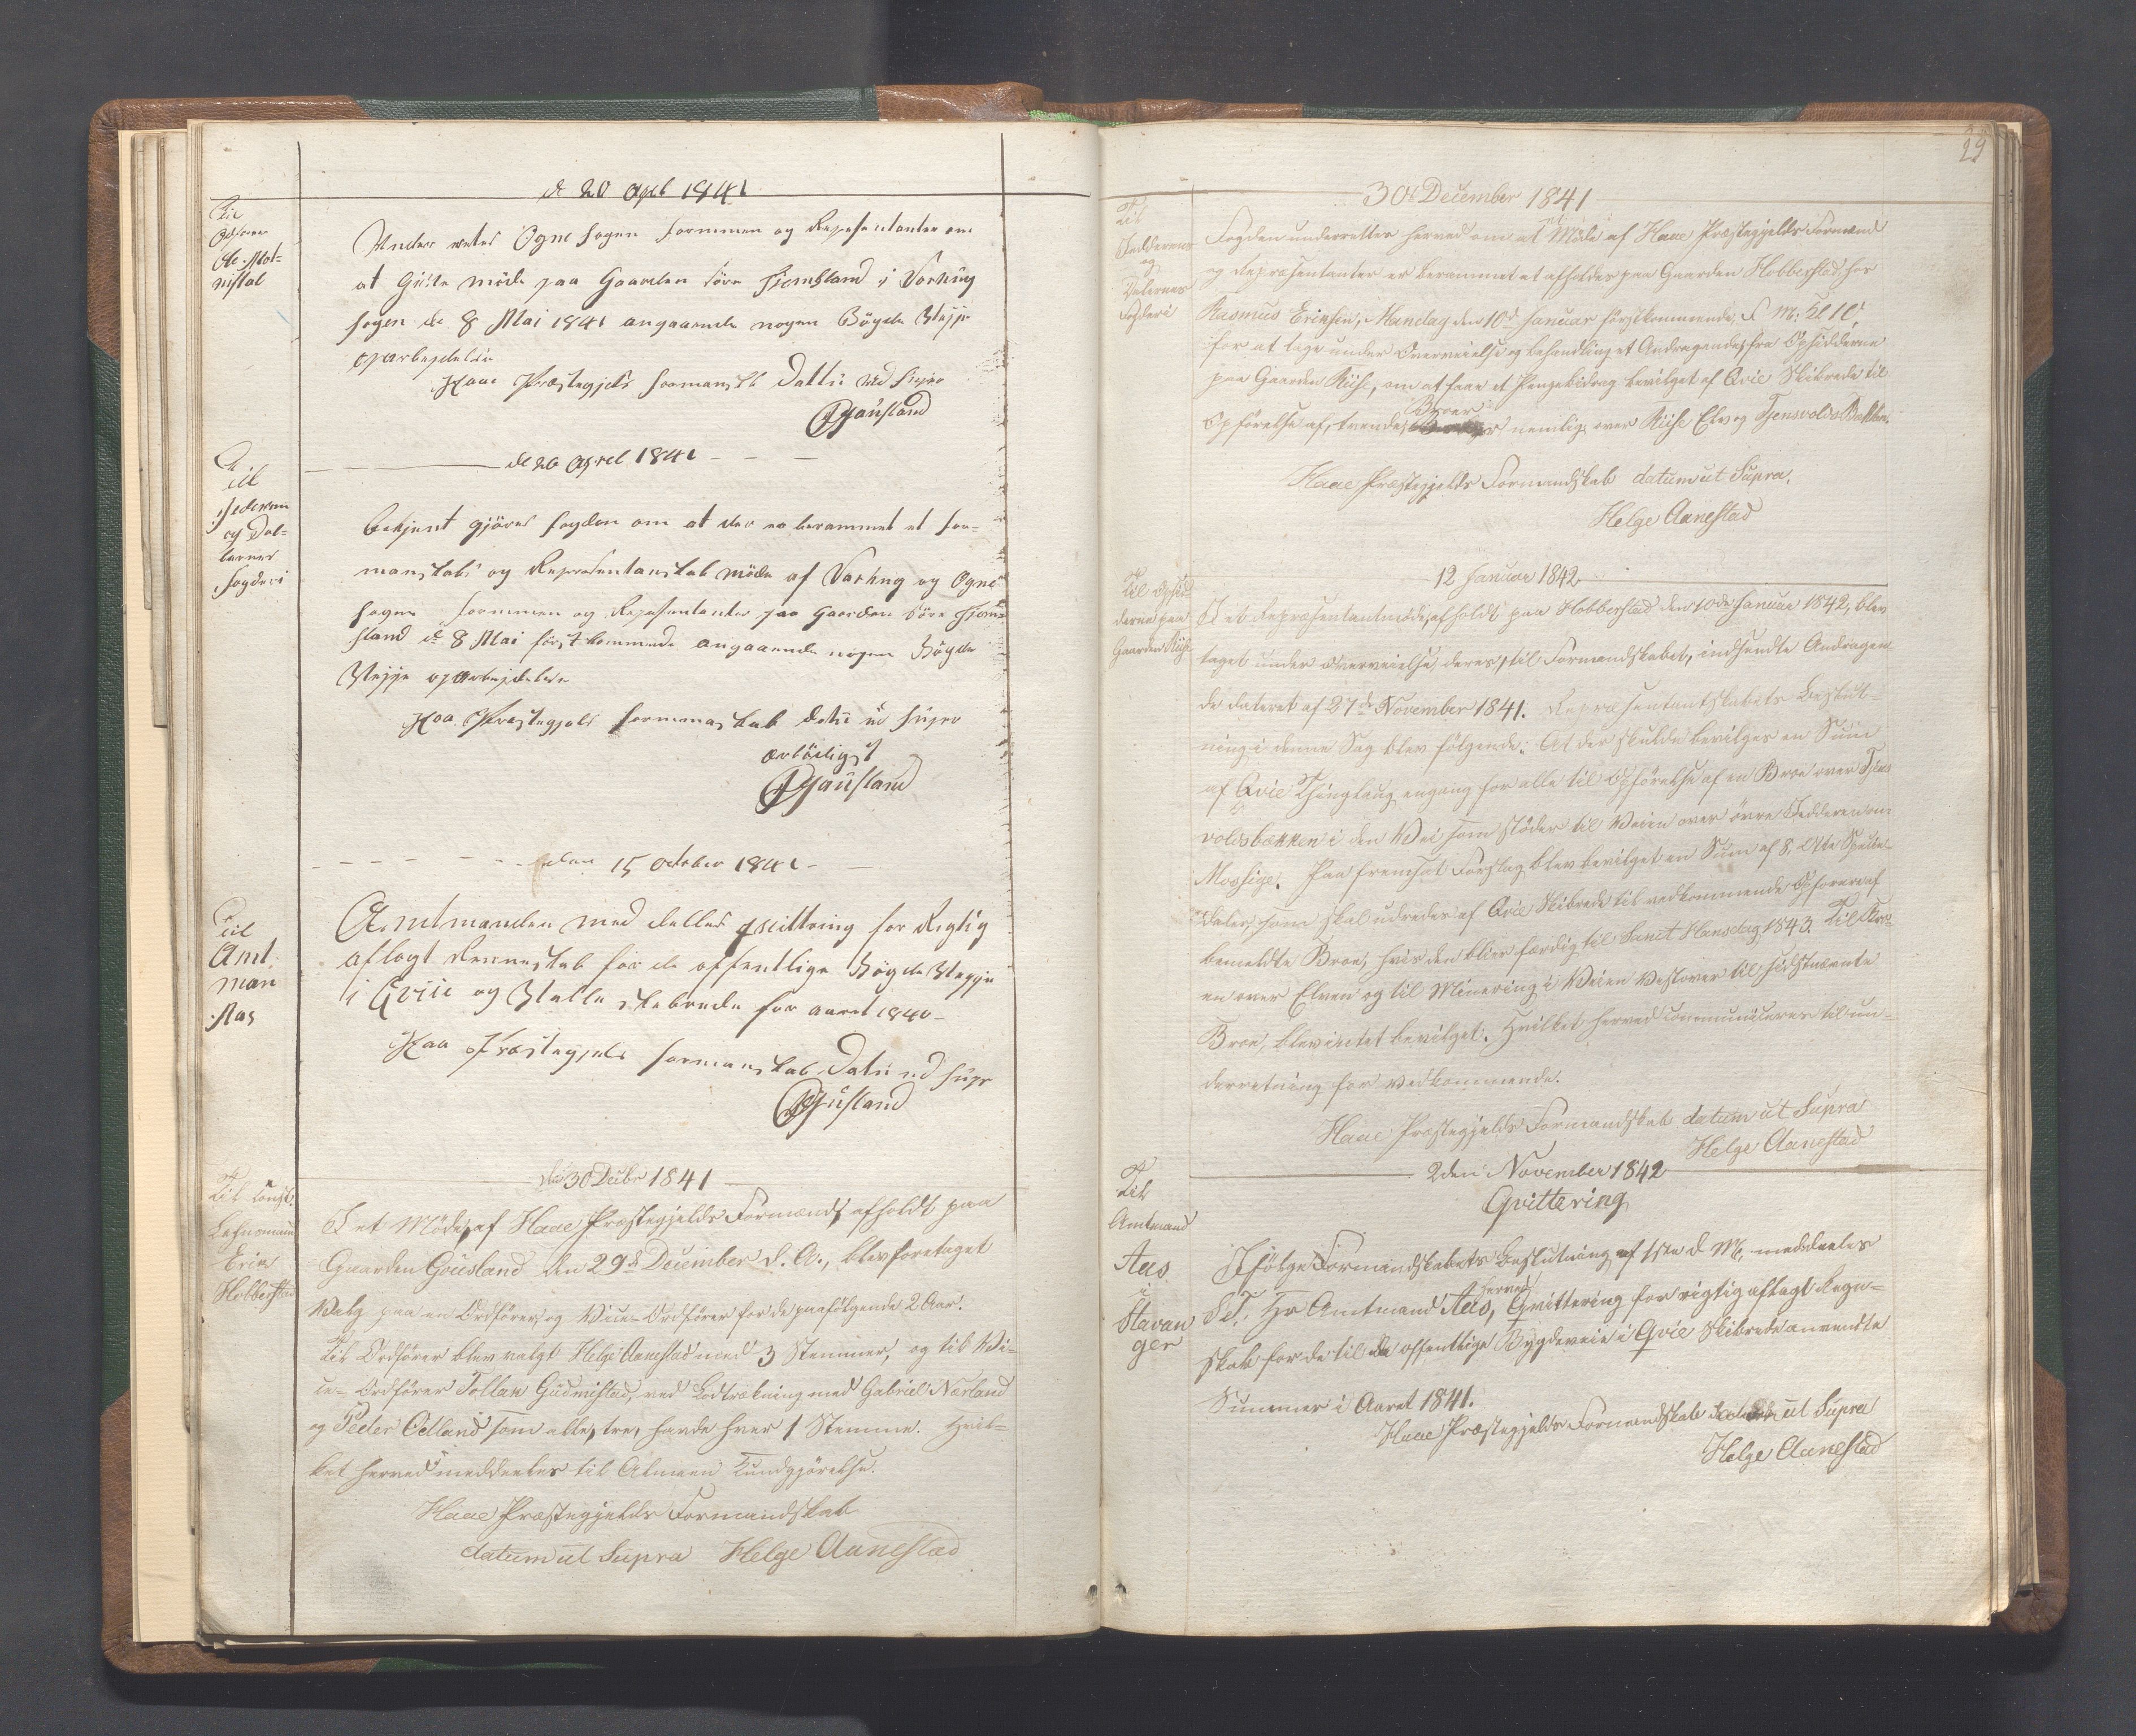 d 20 April 1841
Til
Ordførere
Ole Mot-
nistal
Under rettes Ogne Sogen Formmen og Repesentanter om
at giste møde paa Gaarden Søre Fiemsland i Varhug
Sogen de 8 Mai 1841 angaaende nogen Bøgde Vejje
oparbejdelse
Haae Præstegjels Formanskb Dattu ud Supro
Gausland
d 20 Aprel 1841
Til
Jederen
og Dal-
lernes
Fogderi
Bekjent gjøres Fogden om at der er berammet et For-
manskabs og Repesentanskab møde af Varhug og Ogne
Sogen Formmen og Repesentanter paa Gaarden Søre Fiem-
sland d 8 Mai først kommende angaaende nogen Bøgde
Vejje oparbejdelse
Haa Præstegjels Formmanskab Datu ud Supro
ærbødigst
Gausland
den 15 October 1841
Til
Amt
man
Aas
Amtmanden med delles qvittring for Rigtig
aflagt Renneskab for de offentlige Bøgde Vejje
i Qviie og Stelle skebrede for aaret 1840
Haa Præstegjels Formanskab Datu ud Supr
Gausland
den 30 Decbr 1841
Til Const.
Lehnsmand
Erik
Hobberstad
I et Møde, af Haae Præstegjelds Formænd, afholdt paa
Gaarden Gousland den 29de December d. A., blev foretaget
Valg paa en Ordfører og Vice-Ordfører for de paafølgende 2 Aar.
Til Ordfører blev valgt Helge Aanestad med 3 Stemmer, og til Vi-
ce-Ordfører Tollak Gudmestad, ved Lodtrækning med Gabriel Nærland
og Peder Odland som alle, tre, havde hver 1 Stemme. Hvil-
ket herved meddeeles til Almeen Kundgjørelse.
Haae Præstegjelds Formandskab
datum ut Supra Helge Aanestad
29
30te December 1841
Til
Jedderens
og
Dalernes
Fogderi
Fogden underrettes herved om at et Møde af Haae Præstegjelds Formænd
og Repræsentanter er berammet at afholdes paa Gaarden Hobberstad hos
Rasmus Eriksen, Mandag den 10de Januar førstkommende, F. M. Kl 10,
for at tage under Overveielse og behandling et Andragende fra Opsidderne
paa Gaarden Riise, om at faae et Pengebidrag bevilget af Qvie Skibrede til
Opførelse af, tvende, Broer nemlig over Riise Elv og Tjensvolds Bækken.
Haae Præstegjelds Formandskab datum ut Supra.
Helge Aanestad
12 Januar 1842
Til Opsid-
derne paa
Gaarden Riise
I et Repræsentantmøde, afholdt paa Hobberstad den 10de Januar 1842, blev
taget under overveielse deres, til Formandskabet, indsendte Andragen-
de dateret af 27de November 1841. Repræsentantskabets Beslut-
ning i denne Sag blev følgende: At der skulde bevilges en Sum
af Qvie Thinglaug engang for alle til Opførelse af en Broe over Tjens
voldsbækken i den Vei som støder til Veien over øvre Jedderen om
Mossige. Paa fremsat Forslag blev bevilget en Sum af 8, Otte Specie-
daler, som skal udredes af Qvie Skibrede til vedkommende Opførere af
bemeldte Broe, hvis den bliver færdig til Sanct Hansdag 1843. Til Bro-
en over Elven og til Minering i Veien Vestover til sidstnævnte
Broe, blev intet bevilget. Hvilket herved communiceres til un-
derretning for vedkommende.
Haae Præstegjelds Formandskab datum ut Supra
Helge Aanestad
2den November 1842
Til
Amtmand
Aas
i
Stavan
ger
Qvittering
Ifølge Formandskabets Beslutning af 1ste d. M. meddeeles
S. T. Hr Amtmand Aas, herved Qvittering for rigtig aflagt Regn-
skab for de til de offentlige Bygdeveie i Qvie Skibrede anvendte
Summer i Aaret 1841.
Haae Præstegjelds Formandskab datum ut Supra
Helge Aanestad